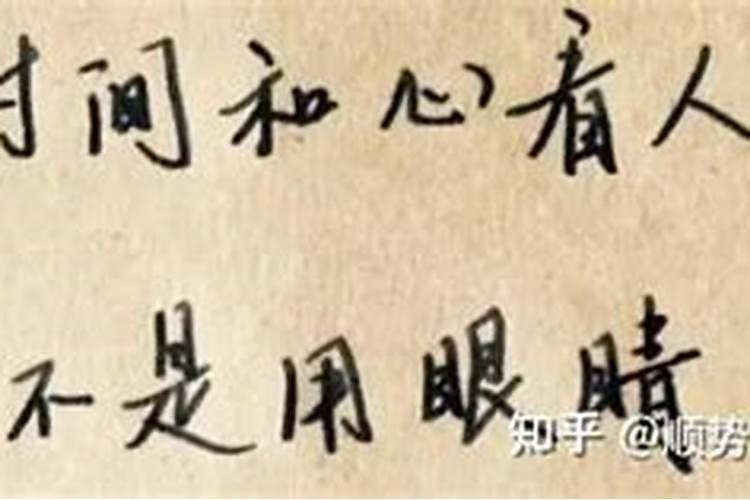 时间和心看人
不是用眼睛
知乎 @顺势